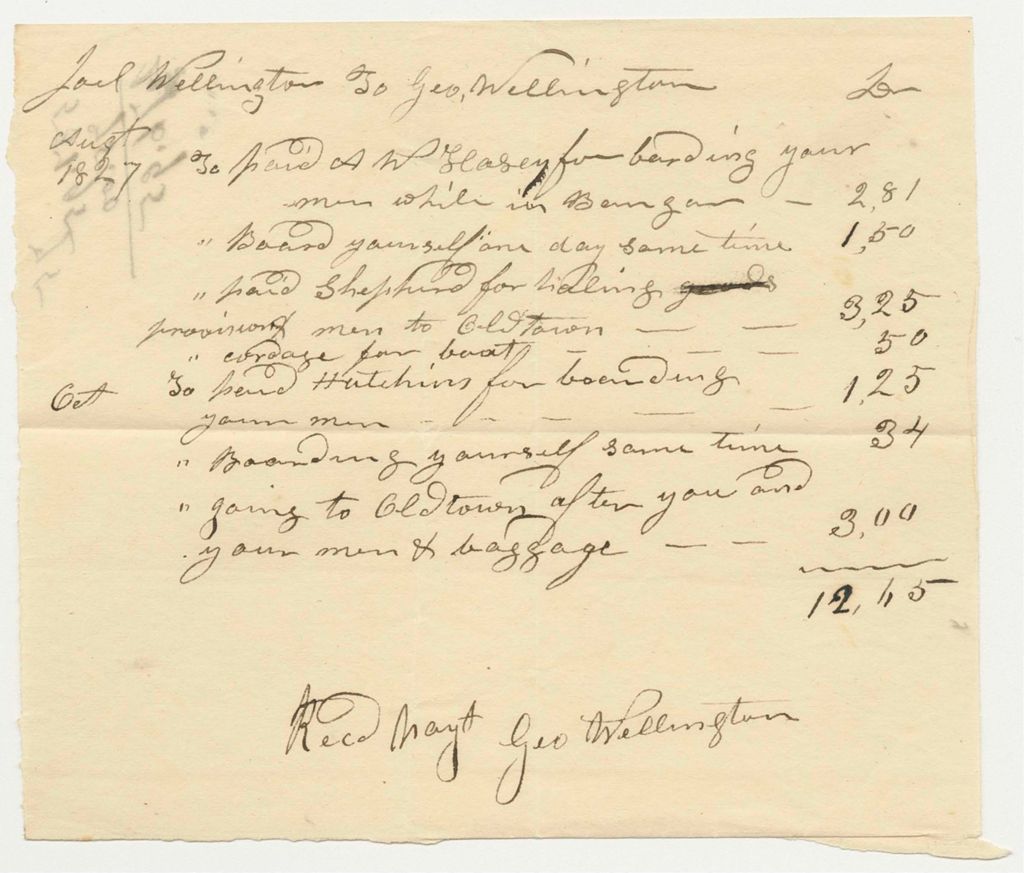 Joel Wellington To Geo, Wellington Dr
Augt
1827 To paid A W Hasey for bording your
men while in Bangor — 2,81
" Board yourself one day same time 1,50
" paid Shepherd for halling goods
provisions men to Oldtown — — — 3,25
" cordage for boat — — — — 50
Oct To paid Hutchins for boarding
your men - - - — — 1,25
" Boarding yourself same time 34
" going to Oldtown after you and
your men & baggage — — 3,00
12,65
Recd Payt Geo Wellington